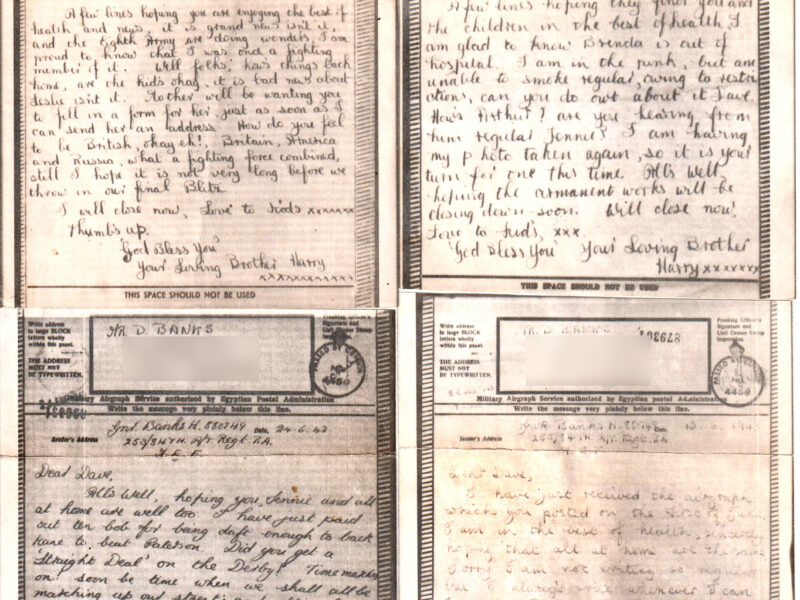 A few lines hoping you are enjoying the best of
health and news, it is grand news isn't it,
and the Eighth Army are doing wonders, I am
proud to know that I was once a fighting
member if it. Well folks, how's things back
home, are the kids okay, it is bad news about
Leslie isn't it. Mother will be wanting you
to fill in a form for her, just as soon as I
can send her an address. How do you feel
to be British, okay eh!, Britain, America
and Russia, what a fighting force combined,
still I hope it is not very long before we
throw in our final Blitz
I will close now, Love to kids xxxxxxx
Thumbs up.
'God Bless You'
Your Loving Brother Harry
xxxxxxxxxxx
THIS SPACE SHOULD NOT BE USED
A few lines hoping they find you and
the children in the best of health, I
am glad to know Brenda is out if
hospital. I am in the pink, but am
unable to smoke regular, owing to restri
ctions, can you do owt about it Dave.
How's Arthur? are you hearing from
him regular Jennie? I am having
my photo taken again, so it is your
turn for one this time. All's Well,
hoping the armament works will be
closing down soon. Will close now,
Love to kids, xxx.
'God Bless You' Your Loving Brother
Harry xxxxxxx
THIS SPACE SHOULD NOT BE USED
Write address
in large BLOCK
letters wholly
within this panel.
THE ADDRESS
MUST NOT
BE TYPEWRITTEN.
MR D. BANKS
Signature and
Unit Censor Stamp
4450
Military Airgraph Service authorized by Egyptian Postal Administration
Write the message very plainly below this line.
Sender's Address
Gnr. Banks H. 880749 Date, 24-6-43
M.E.F.
Dear Dave,
All's Well, hoping you, Jennie and all
at home are well too. I have just paid
out ten bob for being daft enough to back
Kane to beat Paterson. Did you get a
'Straight Deal' on the Derby? Time marches
on! soon be time when we shall all be
marching up our street
Write address
in large BLOCK
letters wholly
within this panel.
THE ADDRESS
MUST NOT
BE TYPEWRITTEN.
MR D. BANKS
Franking Officer's
Signature and
Unit Censor Stamp
Impression.
4450
Military Airgraph Service authorized by Egyptian Postal Administration
Write the message very plainly below this line.
Sender's Address
Banks H. Date
Dear Dave,
I have just received the airgraph
which you posted on the
I am in the best of health, sincerely
hoping that all at home are the same
Sorry I am not writing so regular
but I always write whenever I can